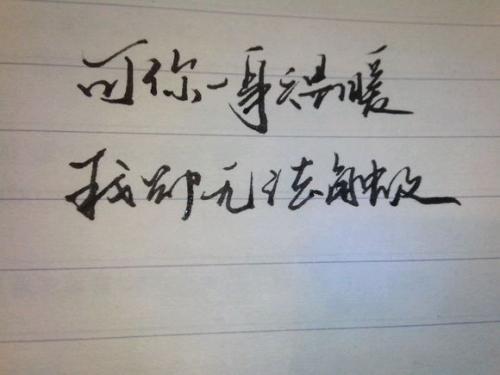 可你一身温暖
我却无法触及